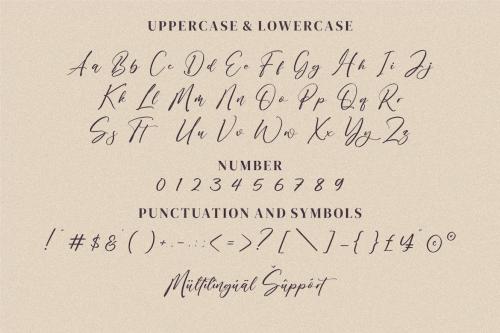 UPPERCASE & LOWERCASE
Aa Bb Cc Dd Ee Ff Gg Hh Ii Jj
Kk Ll Mm Nn Oo Pp Qq Rr
Ss Tt Uu Vv Ww Xx Yy Zz
NUMBER
0 1 2 3 4 5 6 7 8 9
PUNCTUATION AND SYMBOLS
! " # $ & ' ( ) + , - . : ; < = > ? [ \ ] _ { } £ ¥ " © °
Mültilingüäl Šûppórt